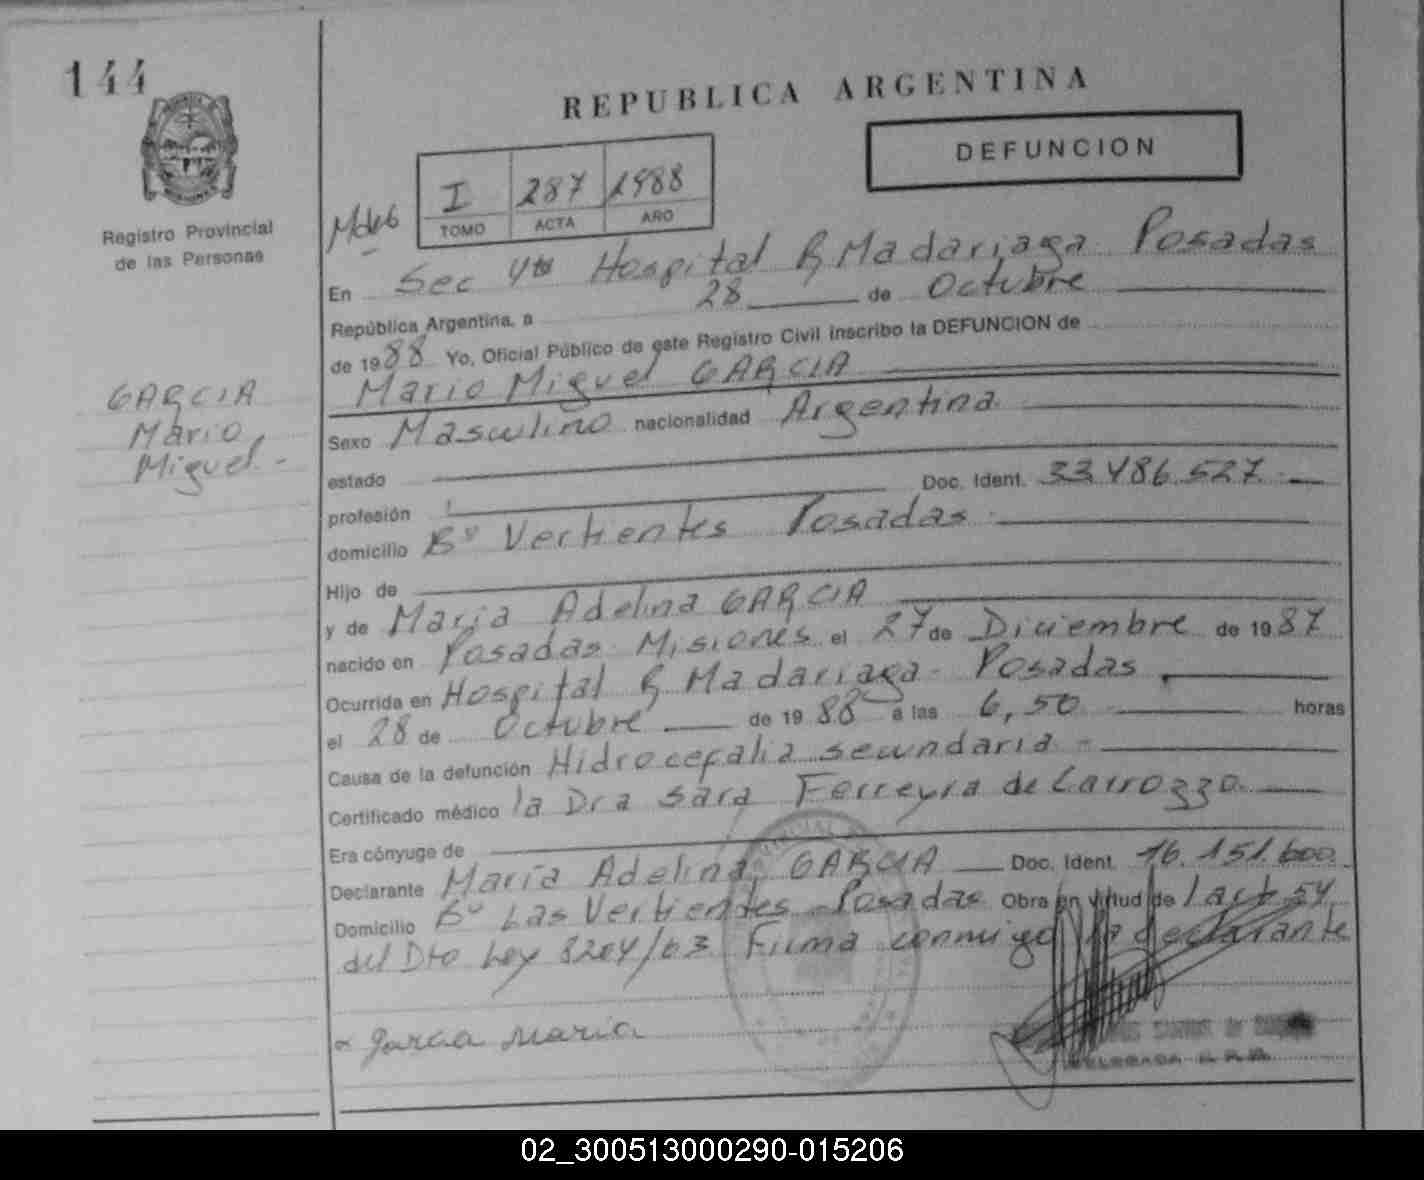 144
REPUBLICA ARGENTINA
DEFUNCION
I 287 1988
TOMO ACTA AÑO
Registro Provincial
de las Personas
En Sec 4ta Hospital R Madariaga Posadas
República Argentina, a 28 de Octubre
de 1988 Yo, Oficial Público de este Registro Civil inscribo la DEFUNCION de
Mario Miguel GARCIA
GARCIA
Mario
Miguel.-
Sexo Masculino nacionalidad Argentina
estado
Doc. Ident. 33.486.527.-
profesión
domicilio Bº Vertientes Posadas.
Hijo de
y de Maria Adelina GARCIA
nacido en Posadas Misiones el 27 de Diciembre de 1987
Ocurrida en Hospital R Madariaga- Posadas
el 28 de Octubre de 1988 a las 6,50 horas
Causa de la defunción Hidrocefalia secundaria -
Certificado médico la Dra Sara Ferreyra de Carrozzo.
Era cónyuge de
Declarante María Adelina GARCIA Doc. Ident. 16.151.600
Domicilio Bº Las Vertientes - Posadas Obra en virtud de l art 54
del Dto Ley 8204/63. Firma conmigo la declarante
Garcia Maria
DELEGADA R.P.P.
02_300513000290-015206